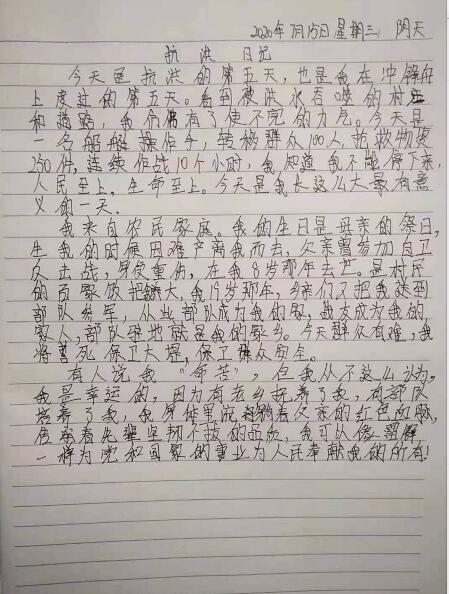 2020年7月15日星期三 阴天
抗洪日记
今天是抗洪的第五天,也是我在冲锋舟
上度过的第五天。看到被洪水吞噬的村庄
和道路,我们偶有了使不完的力层。今天是
一名船艇操作手,转移群众100人,抢救物资
250件,连续作战10个小时,我知道我不能停下来,
人民至上。生命至上。今天是我长这么大最有意
义的一天。
我来自农民家庭。我的生日是母亲的祭日,
生我的时候因难产离我而去,父亲曾参加自卫
反击战,身受重伤,在我8岁那年去世。是村民
的百家饭把我大,我19岁那年,乡亲们又把我送到
部队参军,从此部队成为我的家,战友成为我的
家人,部队驻地就是我的家乡。今天群众有难,我
将誓死保卫大堤,保卫群众安全。
有人说我“命苦”,但我从不这么认为,
我是幸运的,因为有老乡抚养了我,有部队
培养了我,我身体里流着父亲的红色血脉,
传承着先辈坚韧不拔的品质,我可以像
一样为党和国家的事业为人民奉献我的所有!